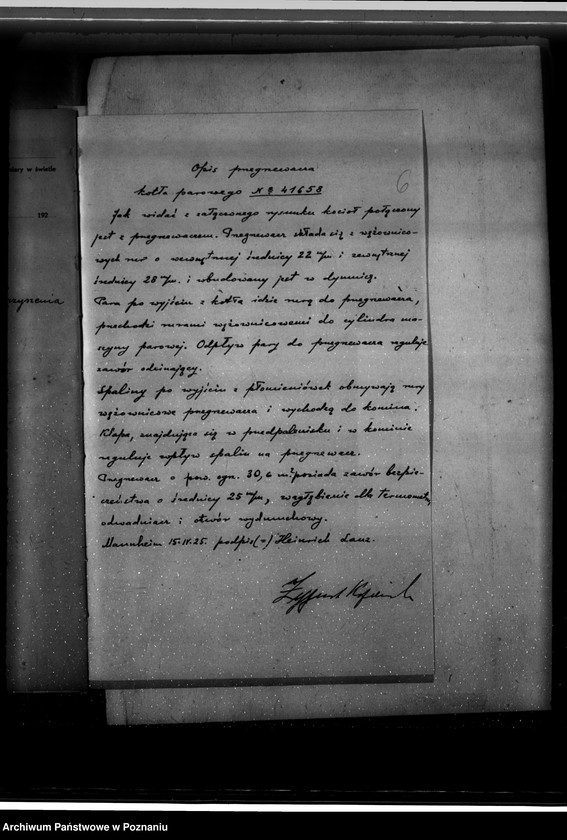 Opis przegrzewacza
6
kotła parowego № 41658
Jak widać z załączonego rysunku kocioł połączony
jest z przegrzewaczem. Przegrzewacz składa się z wężownico-
wych rur o wewnętrznej średnicy 22 m/m i zewnętrznej
średnicy 28 m/m. i wbudowany jest w dymnicę.
Para po wyjściu z kotła idzie rurą do przegrzewacza,
przechodzi rurami wężownicowemi do cylindra ma-
szyny parowej. Odpływ pary do przegrzewacza reguluje
zawór odcinający.
Spaliny po wyjściu z płomieniówek obmywają rury
wężownicowe przegrzewacza i wychodzą do komina.
Klapa, znajdująca się w przedpalenisku i w kominie
reguluje wpływ spalin na przegrzewacz.
Przegrzewacz o pow. ogn. 30,6 m² posiada zawór bezpie-
czeństwa o średnicy 25 m/m, wgłębienie dla termometru,
odwadniacz i otwór wydmuchowy.
Mannheim 15.IV.25. podpis (-) Heinrich Lanz.
Zygmunt
iary w świetle
192
rzyszenia
Archiwum Państwowe w Poznaniu